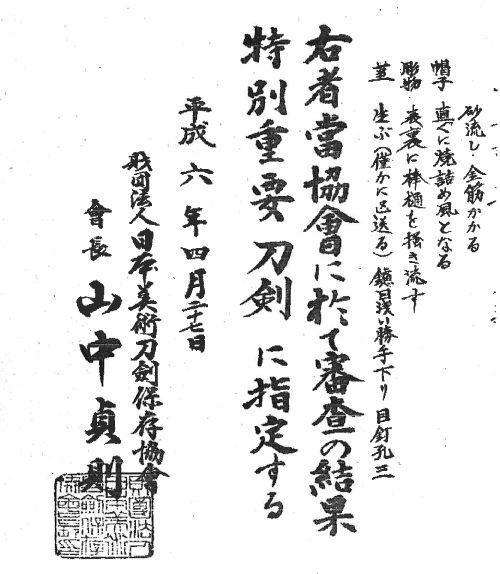 砂流し・金筋かかる
帽子 直ぐに焼詰め風となる
彫物 表裏に棒樋を掻き流す
茎 生ぶ(僅かに区送る)鑢目浅い勝手下り 目釘孔三
右者當協會に於て審査の結果
特別重要刀剣に指定する
平成六年四月二十七日
財団法人日本美術刀剣保存協會
會長 山中貞則